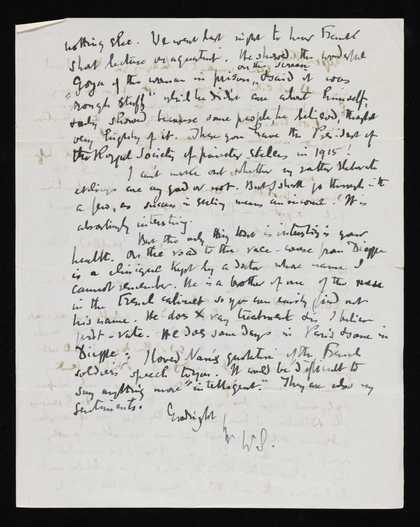 nothing else. We went last night to hear Frank
Short lecture on aquatint. He showed the wonderful
on the screen
Goya of the woman in prison, & said it was
"rough stuff" which he didn't care about himself,
& only showed because some people, he believed, thought
very highly of it. There you have the President of
the Royal Society of painter etchers in 1915!
I can't make out whether my rather elaborate
etchings are any good or not. But I shall go through with
a few, as success in etching means an income. It is
absorbingly interesting.
But the only thing that is interesting is your
health. On the road to the race-course from Dieppe
is a clinique kept by a doctor whose name I
cannot remember. He is a brother of one of the
in the French cabinet so you can easily find out
his name. He does X ray treatment & is I believe
first-rate. He does some days in Paris & some in
Dieppe. I loved Nan's quotation of the French
soldiers speech to you. It would be difficult to
say anything more "intelligent". They are also my
sentiments.
Goodnight
W.S.